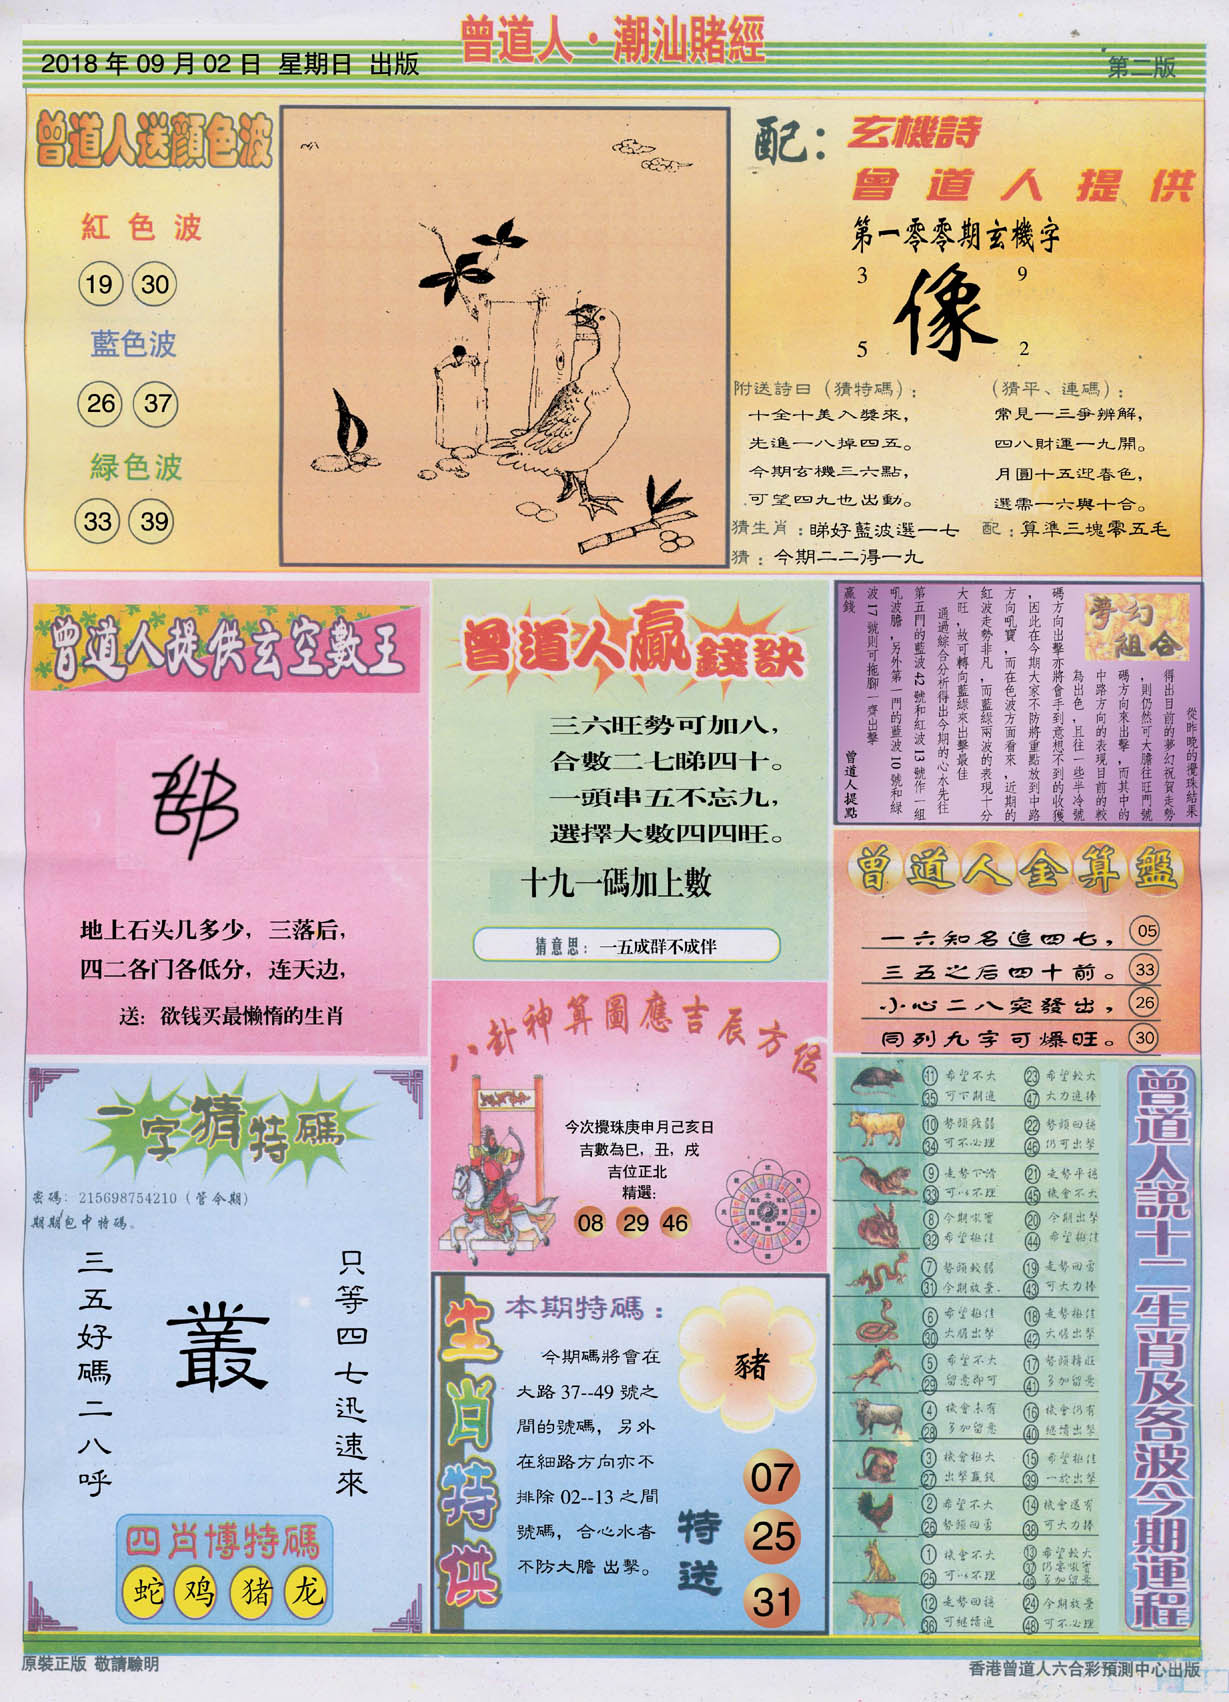 曾道人·潮汕賭經
2018年09月02日 星期日 出版
第二版
曾道人送顏色波
紅色波
19 30
藍色波
26 37
緑色波
33 39
配：
玄機詩
曾道人提供
第一零零期玄機字
3 9
像
5 2
附送詩曰（猜特碼）：
十全十美入獎來，
先進一八掉四五。
今期玄機三六點，
可望四九也出動。
猜生肖：睇好藍波選一七
猜：今期二二得一九
（猜平、連碼）：
常見一三爭辨解，
四八財運一九開。
月圓十五迎春色，
選需一六與十合。
配：算準三塊零五毛
曾道人提供玄空數王
地上石头几多少，三落后，
四二各门各低分，连天边，
送：欲钱买最懒惰的生肖
曾道人贏錢訣
三六旺勢可加八，
合數二七睇四十。
一頭串五不忘九，
選擇大數四四旺。
十九一碼加上數
猜意思：一五成群不成伴
夢幻
組合
從昨晚的攪珠結果
得出目前的夢幻祝賀走勢
，則仍然可大膽往旺門號
碼方向來出擊，而其中的
中路方向的表現目前的較
為出色，且往一些半冷號
碼方向出擊亦將會手到意想不到的收獲
，因此在今期大家不防將重點放到中路
方向吼寶，而在色波方面看來，近期的
紅波走勢非凡，而藍綠兩波的表現十分
大旺，故可轉向藍綠來出擊最佳
通過綜合分析得出今期的心水先往
第五門的藍波42號和紅波13號作一組
吼波膽，另外第一門的藍波10號和綠
波17號則可拖腳一齊出擊
贏錢
曾道人提點
曾道人金算盤
一六知名追四七， 05
三五之后四十前。 33
小心二八突發出， 26
同列九字可爆旺。 30
八卦神算圖應吉辰方位
今次攪珠庚申月己亥日
吉數為巳，丑，戌
吉位正北
精選：
08 29 46
一字猜特碼
密碼：215698754210（管令期）
期期包中特碼。
只等四七迅速來
叢
三五好碼二八呼
四肖博特碼
蛇 鸡 猪 龙
生肖特供
本期特碼：
今期碼將會在
大路37--49號之
間的號碼，另外
在細路方向亦不
排除02--13之間
號碼，合心水者
不防大膽出擊。
豬
特送
07
25
31
曾道人説十二生肖及各波今期運程
11 希望不大 23 希望較大
35 可下期追 47 大力追捧
10 勢頭疲弱 22 勢頭回穩
34 可不必理 46 仍可出擊
9 走勢下滑 21 走勢平穩
33 可以不理 45 機會不大
8 今期吼實 20 今期出擊
32 希望極佳 44 希望極佳
7 勢頭較弱 19 走勢回勇
31 今期放棄 43 可大力捧
6 希望極佳 18 走勢極佳
30 大膽出擊 42 大膽出擊
5 希望不大 17 勢頭轉旺
29 留意即可 41 多加留意
4 機會未有 16 機會仍有
28 多加留意 40 繼續出擊
3 機會極大 15 希望極佳
27 出擊贏錢 39 一於出擊
2 希望不大 14 機會還有
26 勢頭回勇 38 可大力捧
1 機會不大 13 希望較大
25 可以不理 37 仍要吼實
49 多加留意
12 走勢回穩 24 今期放棄
36 可繼續追 48 可不必理
原裝正版 敬請驗明
香港曾道人六合彩預測中心出版